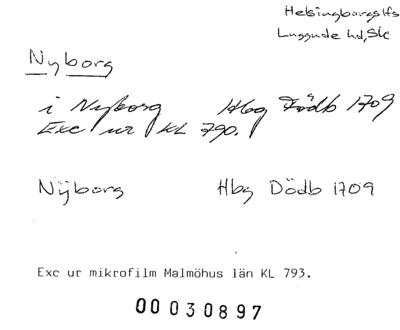 Helsingborgs lfs
Luggude hd, Sk
Nyborg
i Nyborg Hbg Dödb 1709
Exc ur KL 790.
Nÿborg Hbg Dödb 1709
Exc ur mikrofilm Malmöhus län KL 793.
00030897